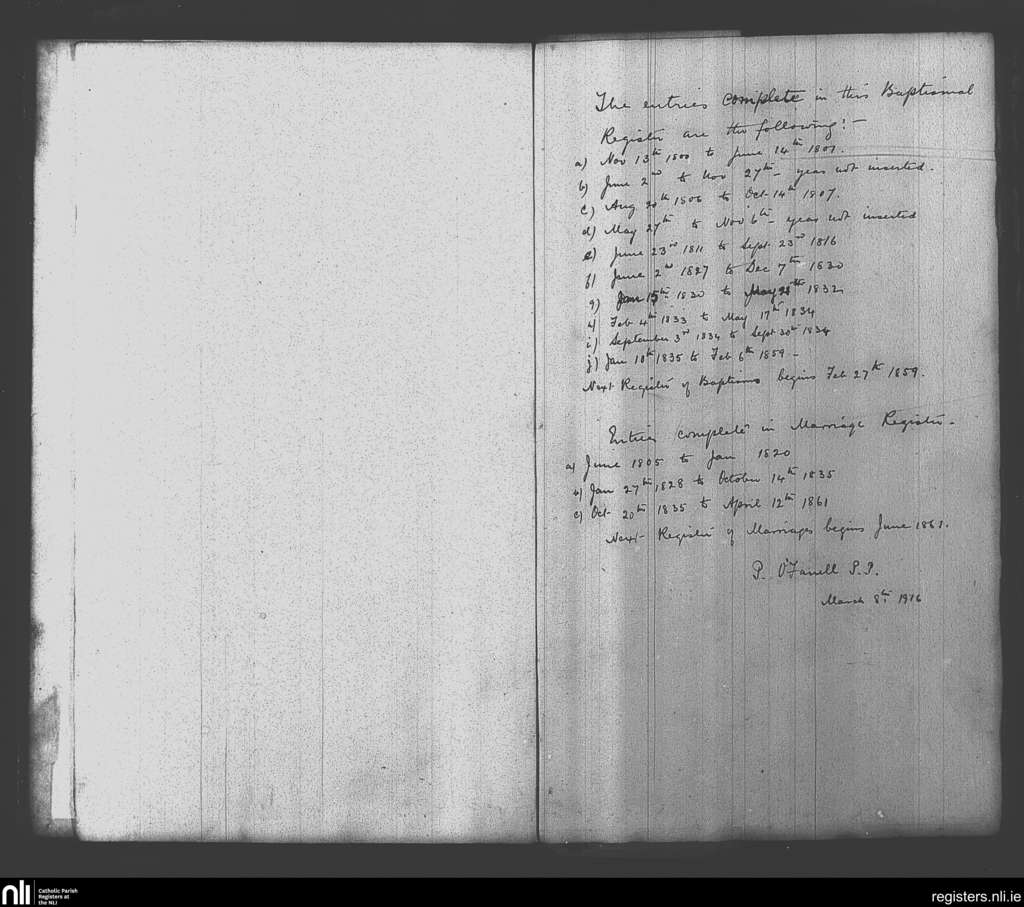 The entries complete in this Baptismal
Register are the following:—
a) Nov 13th 1800 to June 14th 1801.
b) June 2nd to Nov 27th – year not inserted.
c) Aug 20th 1806 to Oct 14th 1807.
d) May 27th to Nov 6th – year not inserted
e) June 23rd 1811 to Sept 23rd 1816
f) June 2nd 1827 to Dec 7th 1830
g) Jan 15th 1830 to May 28th 1832
h) Feb 4th 1833 to May 17th 1834
i) September 3rd 1834 to Sept 30th 1834
j) Jan 10th 1835 to Feb 6th 1859 –
Next Register of Baptisms begins Feb 27th 1859.
Entries complete in Marriage Register –
a) June 1805 to Jan 1820
b) Jan 27th 1828 to October 14th 1835
c) Oct 20th 1835 to April 12th 1861
Next Register of Marriages begins June 1861.
P. O'Farrell P.P.
March 8th 1916
nli
Catholic Parish
Registers at
the NLI
registers.nli.ie